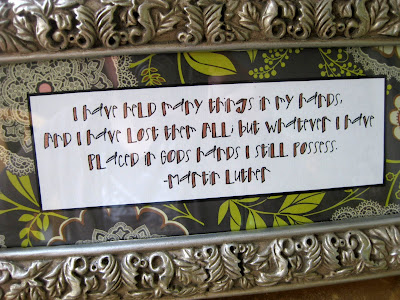 I have held many things in my hands,
and I have lost them all; but whatever I have
placed in Gods hands I still possess.
-Martin Luther